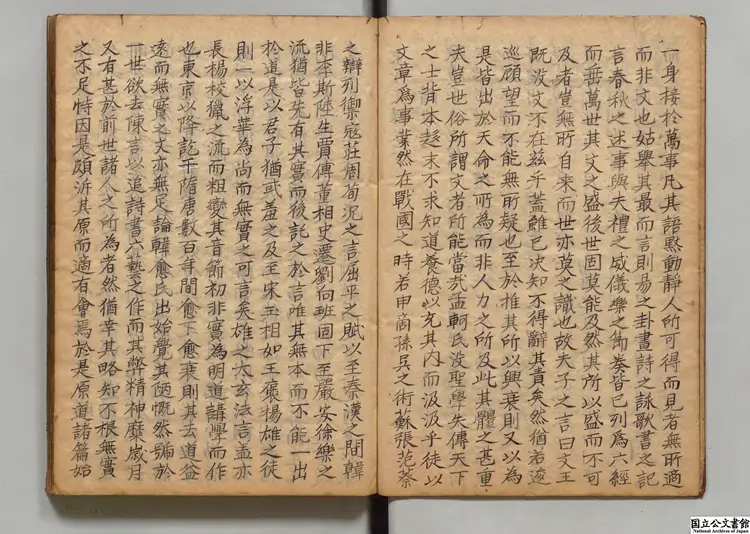 一身接於萬事凡其語黙動静人所可得而見者無所適
而非文也姑舉其最而言則易之卦畫詩之詠歌書之記
言春秋之述事與夫禮之威儀樂之節奏皆已列為六經
而垂萬世其文之盛後世固莫能及然其所以盛而不可
及者豈無所自来而世亦莫之識也故夫子之言曰文王
既没文不在兹乎蓋雖已决知不得辭其責矣然猶若逡
巡顧望而不能無所疑也至於推其所以興衰則又以為
是皆出於天命之所為而非人力之所及此其體之甚重
夫豈世俗所謂文者所能當哉孟軻氏没聖學失傳天下
之士背本趍末不求知道養德以充其内而汲汲乎徒以
文章為事業然在戰國之時若申商孫吳之術蘇張范蔡
之辯列禦寇莊周荀况之言屈平之賦以至秦漢之間韓
非李斯陸生賈傅董相史遷劉向班固下至嚴安徐樂之
流猶皆先有其實而後託之於言唯其無本而不能一出
於道是以君子猶或羞之及至宋玉相如王褒揚雄之徒
則一以浮華為尚而無實之可言矣雄之太玄法言蓋亦
長楊校獵之流而粗變其音節初非實為明道講學而作
也東京以降訖于隋唐數百年間愈下愈衰則其去道益
遠而無實之文亦無足論韓愈氏出始覺其陋慨然號於
一世欲去陳言以追詩書六藝之作而其弊精神縻歳月
又有甚於前世諸人之所為者然猶幸其略知不根無實
之不足恃因是頗泝其原而適有會焉於是原道諸篇始
国立公文書館
National Archives of Japan